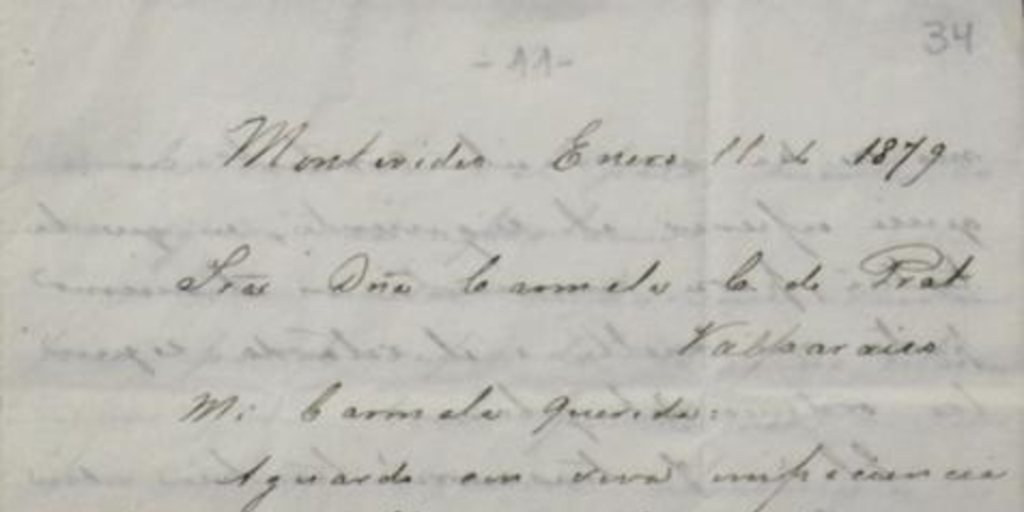 34
- 11 -
Montevideo Enero 11 de 1879
Sra Dña Carmela C. de Prat
Valparaiso
Mi Carmela querida:
Aguardo con viva impaciencia